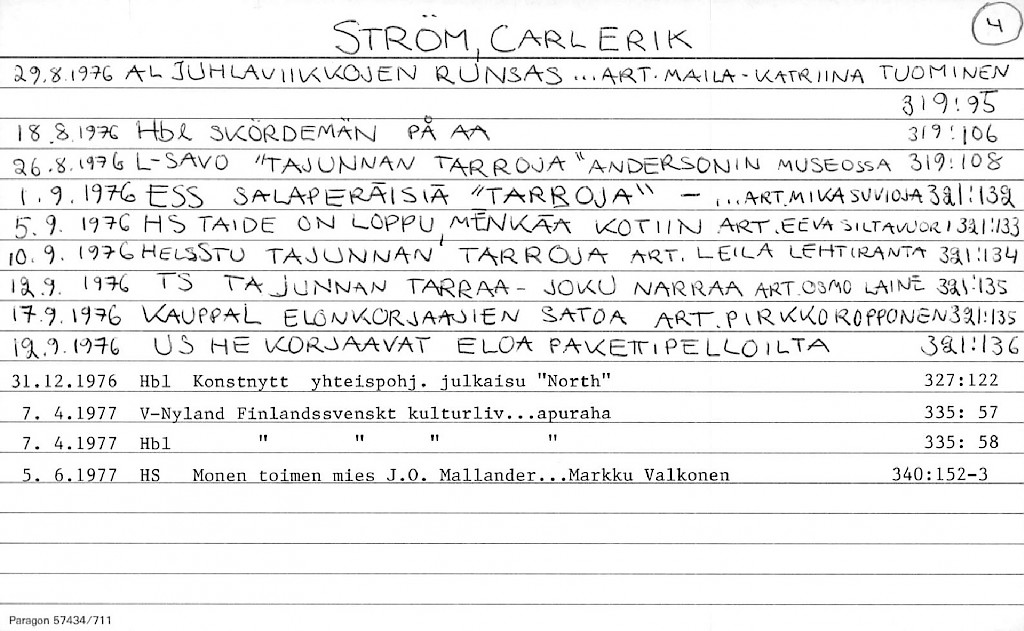 4
STRÖM, CARL ERIK
29.8.1976 AL JUHLAVIIKKOJEN RUNSAS ... ART. MAILA-KATRIINA TUOMINEN
319:95
18.8.1976 Hbl SKÖRDEMÄN PÅ AA 319:106
26.8.1976 L-SAVO "TAJUNNAN TARROJA" ANDERSONIN MUSEOSSA 319:108
1.9.1976 ESS SALAPERÄISIÄ "TARROJA" — ...ART. MIKA SUVIOJA 321:132
5.9. 1976 HS TAIDE ON LOPPU, MENKÄÄ KOTIIN ART. EEVA SILTAVUORI 321:133
10.9. 1976 HELSSTU TAJUNNAN TARROJA ART. LEILA LEHTIRANTA 321:134
12.9. 1976 TS TAJUNNAN TARRAA - JOKU NARRAA ART. OSMO LAINE 321:135
17.9.1976 KAUPPAL ELONKORJAAJIEN SATOA ART. PIRKKO ROPPONEN 321:135
12.9.1976 US HE KORJAAVAT ELOA PAKETTIPELLOILTA 321:136
31.12.1976 Hbl Konstnytt yhteispohj. julkaisu "North" 327:122
7. 4.1977 V-Nyland Finlandssvenskt kulturliv...apuraha 335: 57
7. 4.1977 Hbl " " " " 335: 58
5. 6.1977 HS Monen toimen mies J.O. Mallander...Markku Valkonen 340:152-3
Paragon 57434/711